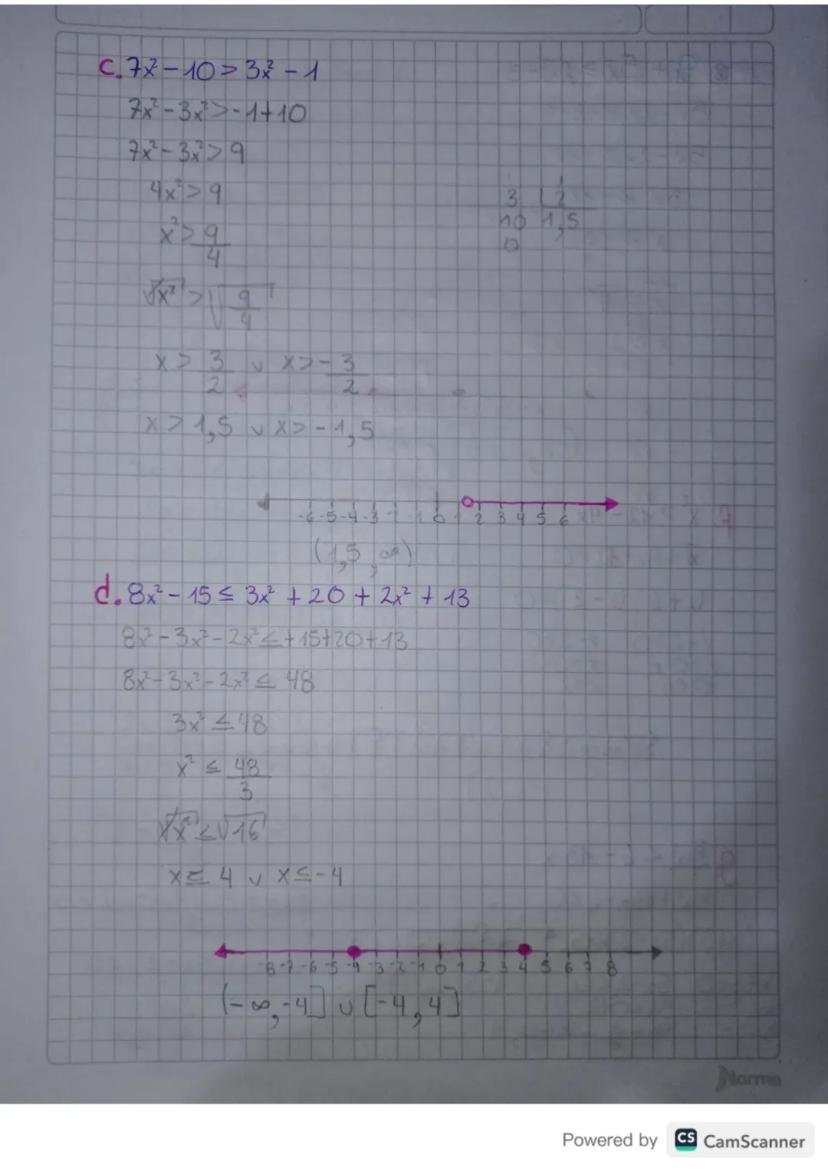 c. 7x² - 10 > 3x² - 1
7x² - 3x² > -1 + 10
7x² - 3x² > 9
4x² > 9
3 2
10 1,5
0
x² > 9/4
√x² > √9/4
x > 3/2 v x > -3/2
x > 1,5 v x > -1,5
-6 -5 -4 -3 -2 -1 0 1 2 3 4 5 6
(1,5, ∞)
d. 8x² - 15 ≤ 3x² + 20 + 2x² + 13
8x² - 3x² - 2x² ≤ +15+20+13
8x² - 3x² - 2x² ≤ 48
3x² ≤ 48
x² ≤ 48/3
√x² ≤ √16
x ≤ 4 v x ≤ -4
-8 -7 -6 -5 -4 -3 -2 -1 0 1 2 3 4 5 6 7 8
(-∞, -4] ∪ [-4, 4]
Norma
Powered by CS CamScanner